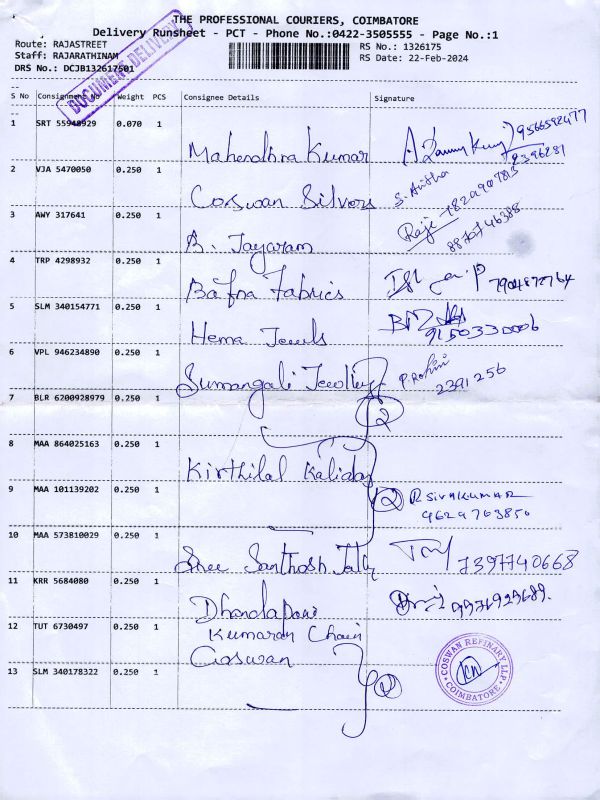 THE PROFESSIONAL COURIERS, COIMBATORE
Delivery Runsheet - PCT - Phone No.:0422-3505555 - Page No.:1
Route: RAJASTREET
RS No.: 1326175
Staff: RAJARATHINAM
RS Date: 22-Feb-2024
DRS No.: DCJB132617501
DOCUMENT DELIVERY
S No Consignment No Weight PCS Consignee Details Signature
1 SRT 55940929 0.070 1 Mahendhra Kumar 9566592477
2 VJA 5470050 0.250 1 Coswan Silvers S. Anitha
3 AWY 317641 0.250 1 B. Jayaram Raje 8870746388
4 TRP 4298932 0.250 1 Bafna Fabrics 7904872764
5 SLM 340154771 0.250 1 Hema Jewels 9150330006
6 VPL 946234890 0.250 1 Sumangali Jewellery P. Rohini 2391256
7 BLR 6200928979 0.250 1 2
8 MAA 864025163 0.250 1 Kirthilal Kalidas
9 MAA 101139202 0.250 1 2 R SIVAKUMAR
9629763850
10 MAA 573810029 0.250 1 Shree Santhosh 7397740668
11 KRR 5684080 0.250 1 Dhandapani 9976929689.
Kumaran Chain
12 TUT 6730497 0.250 1 Coswan
13 SLM 340178322 0.250 1 2
COSWAN REFINARY LLP.
COIMBATORE